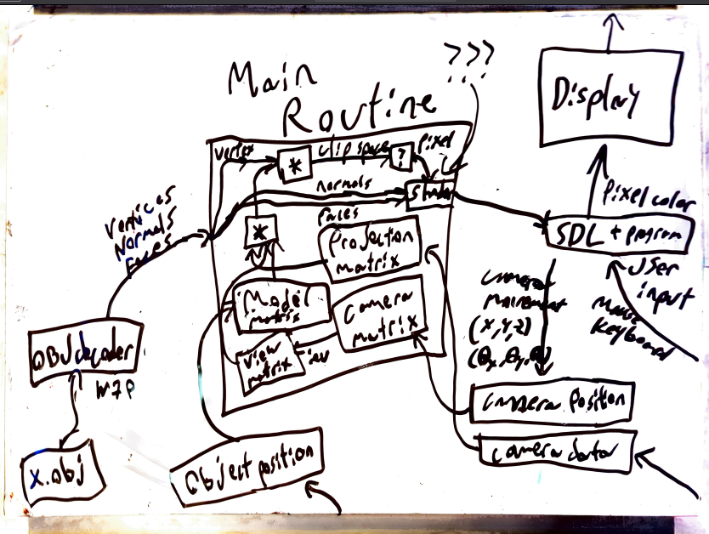 Main
Routine
???
Display
vertex
*
clip space
?
pixel
normals
faces
*
Projection
matrix
Model
matrix
Camera
matrix
view
matrix
inv
vertices
Normals
Faces
OBJ decoder
WIP
x.obj
Object position
Pixel color
SDL + program
User
input
Mouse
Keyboard
camera
movement
(x,y,z)
camera position
camera data